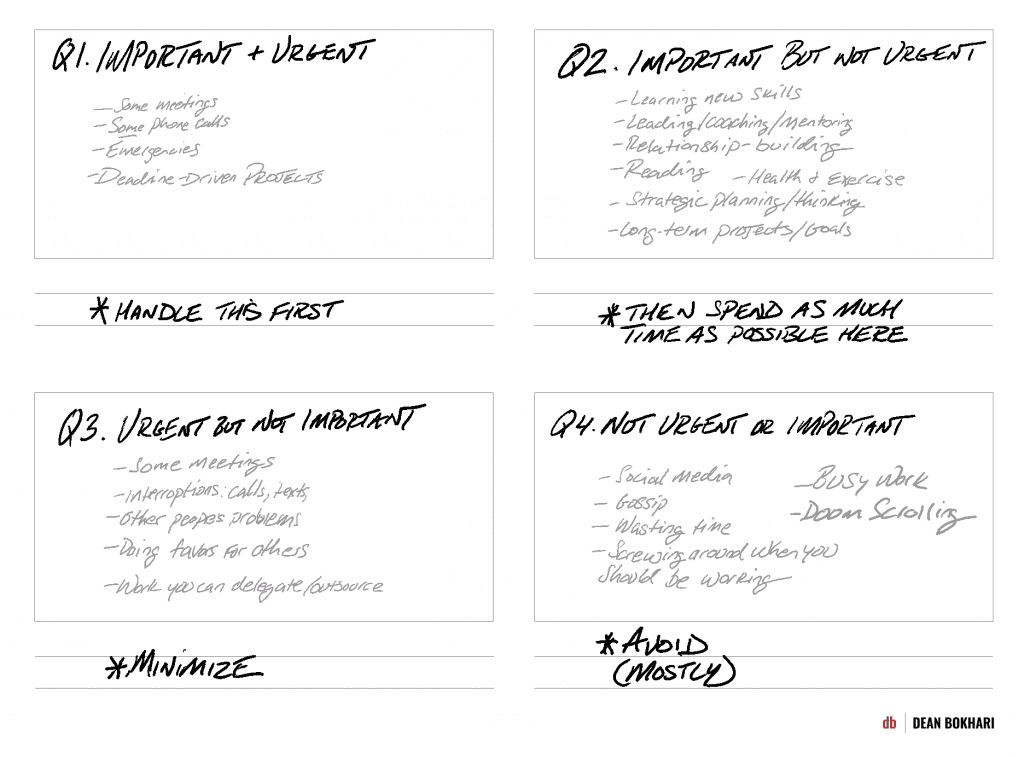 Q1. IMPORTANT + URGENT
- Some meetings
- Some phone calls
- Emergencies
- Deadline-Driven PROJECTS
* HANDLE THIS FIRST
Q2. IMPORTANT BUT NOT URGENT
- Learning new skills
- Leading/coaching/mentoring
- Relationship-building
- Reading - Health & Exercise
- Strategic planning/thinking
- Long-term projects/Goals
* THEN SPEND AS MUCH
TIME AS POSSIBLE HERE
Q3. URGENT BUT NOT IMPORTANT
- Some meetings
- Interroptions: calls, texts,
- Other peope's problems
- Doing favors for others
- Work you can delegate/outsource
* MINIMIZE
Q4. NOT URGENT OR IMPORTANT
- Social media
- Gossip
- Wasting time
- Screwing around when you
should be working
- Busy Work
- Doom Scrolling
* AVOID
(MOSTLY)
db | DEAN BOKHARI